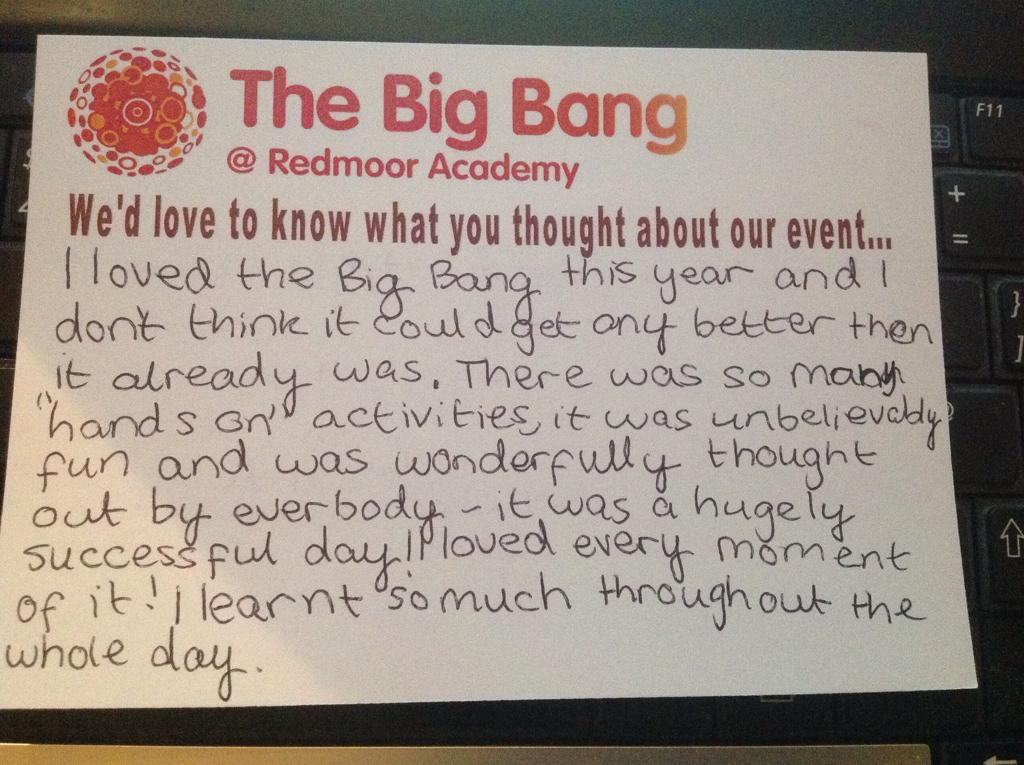 The Big Bang
@ Redmoor Academy
We'd love to know what you thought about our event...
I loved the Big Bang this year and I
don't think it could get any better then
it already was. There was so many
"hands on" activities, it was unbelievably
fun and was wonderfully thought
out by everbody - it was a hugely
successful day! I loved every moment
of it! I learnt so much throughout the
whole day.
F11
+
=
}
]